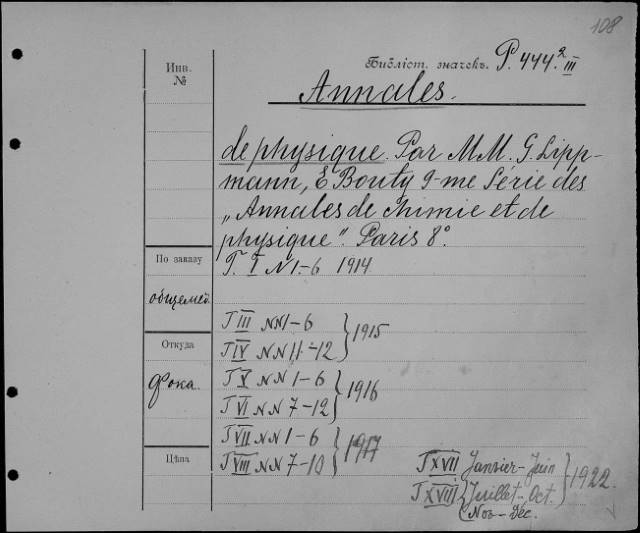 108
Инв. №
Библіот. значекъ. P. 444. 2 III
Annales.
de physique. Par MM. G. Lipp-
mann, E Bouty 9-me Série des
„Annales de chimie et de
physique“. Paris 8°.
T. I N 1-6 1914
По заказу
общемей
T III NN 1-6
T IV NN 11-12 } 1915
Откуда
Фока.
T V NN 1-6
T VI NN 7-12 } 1916
T VII NN 1-6
T VIII NN 7-10 } 1917
Цѣна
T XVII Janvier-Juin
T XVIII Juillet-Oct.
Nov-Déc. } 1922.